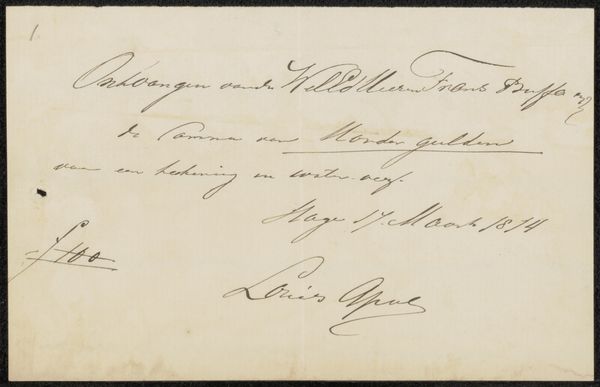 1.
Ontvangen van de WelEd Heeren Frans Buffa en Z
de Somma van Honder gulden
voor een teekening in water-verf.
Hage 17 Maart 1874
f 100
Louis Apol